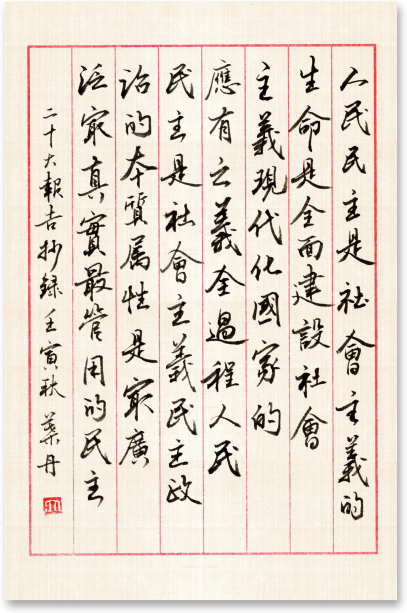 人民民主是社會主義的
生命是全面建設社會
主義現代化國家的
應有之義全過程人民
民主是社會主義民主政
治的本質属性是最廣
泛最真實最管用的民主
二十大報告抄録壬寅秋 葉丹